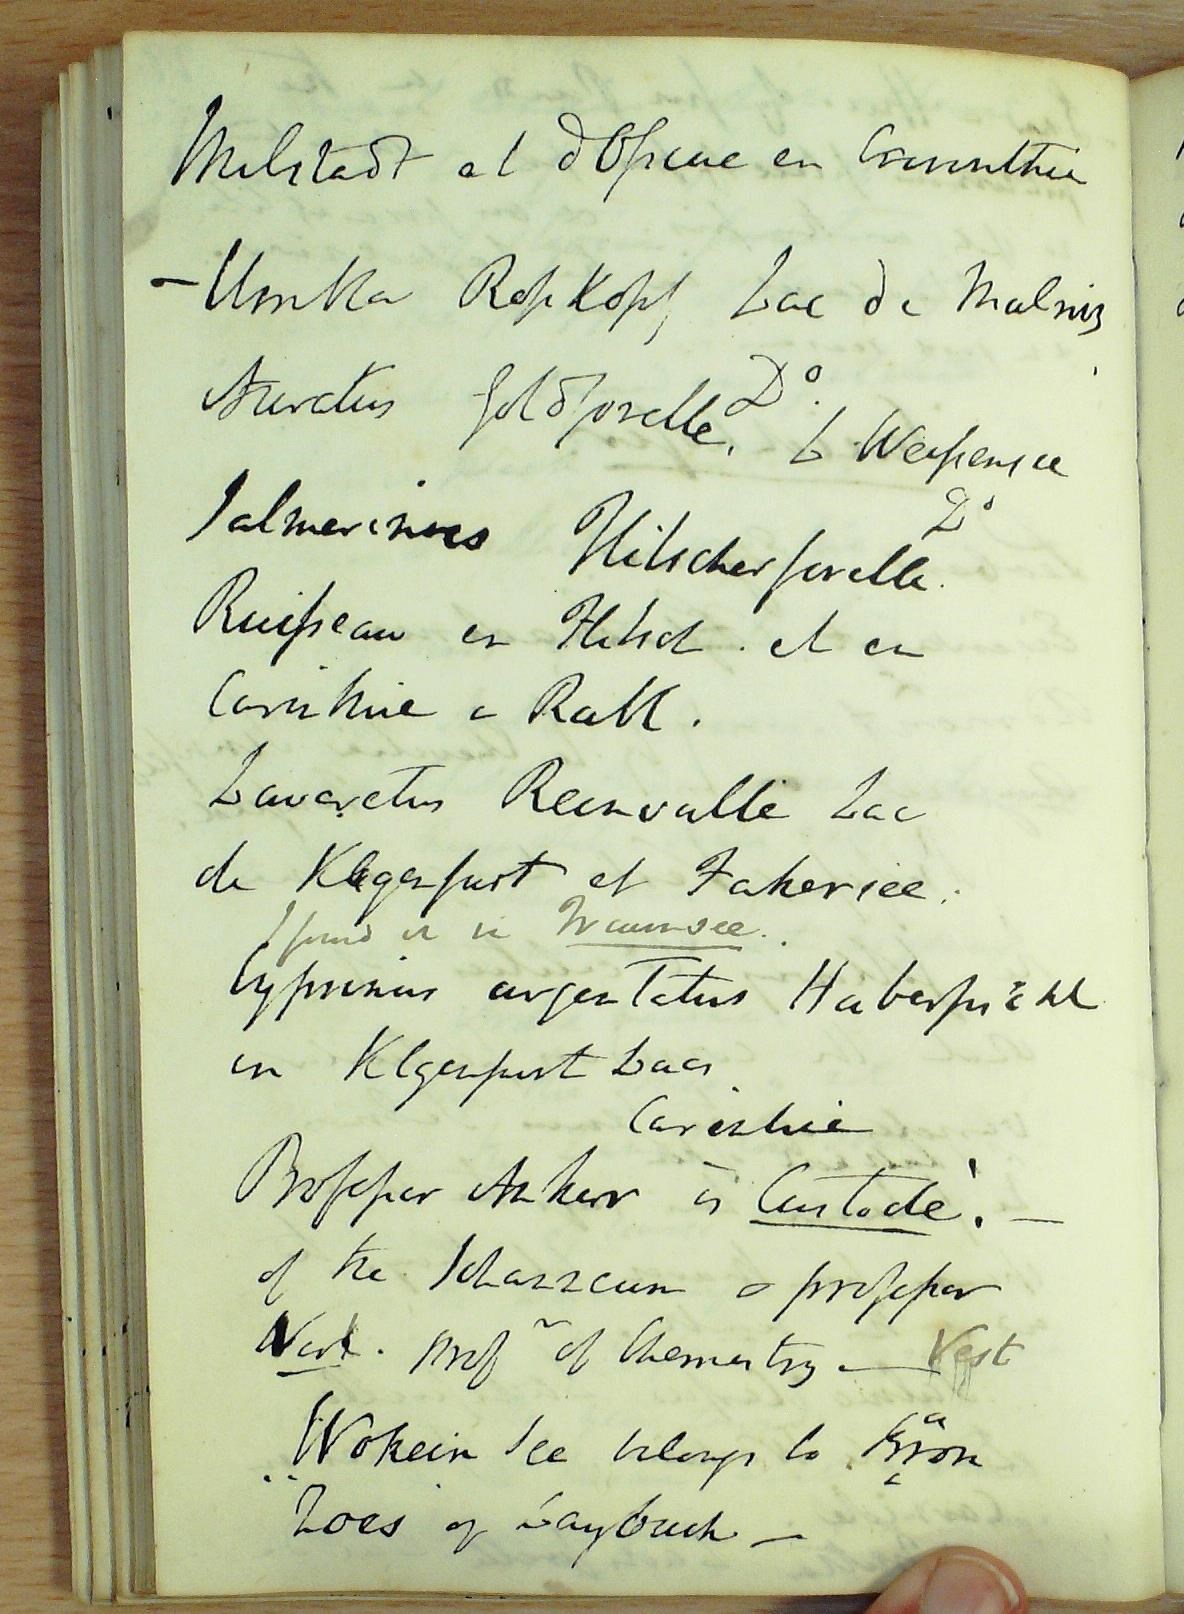 Milstadt et d'Ossiac en Carinthie
– Umbla Rosskopf Lac de Malniz
Auratus Goldforelle. Do. L Weissensee
Salmerinus Flitscherforelle. Do
Ruisseau en Flitsch. et en
Carinthie a Raibl.
Lavaretus Reinvalle Lac
de Klgenfurt et Fakersee.
I found it in Traunsee.
Cyprinus argentatus
en Klgenfurt Lacs
Carinthie
Professor Anker is Custode. —
of the Iohanneum & professor
Vest. Profr of Chemistry — Vest
Wokein See belongs to
Zoes of Laybach —